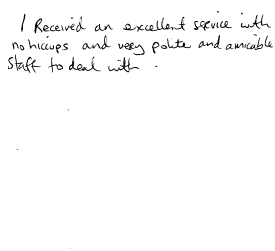 I Received an excellent service with
no hiccups and very polite and amicable
staff to deal with .